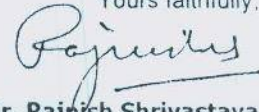 Yours faithfully,
r. Rajnish Shrivastava